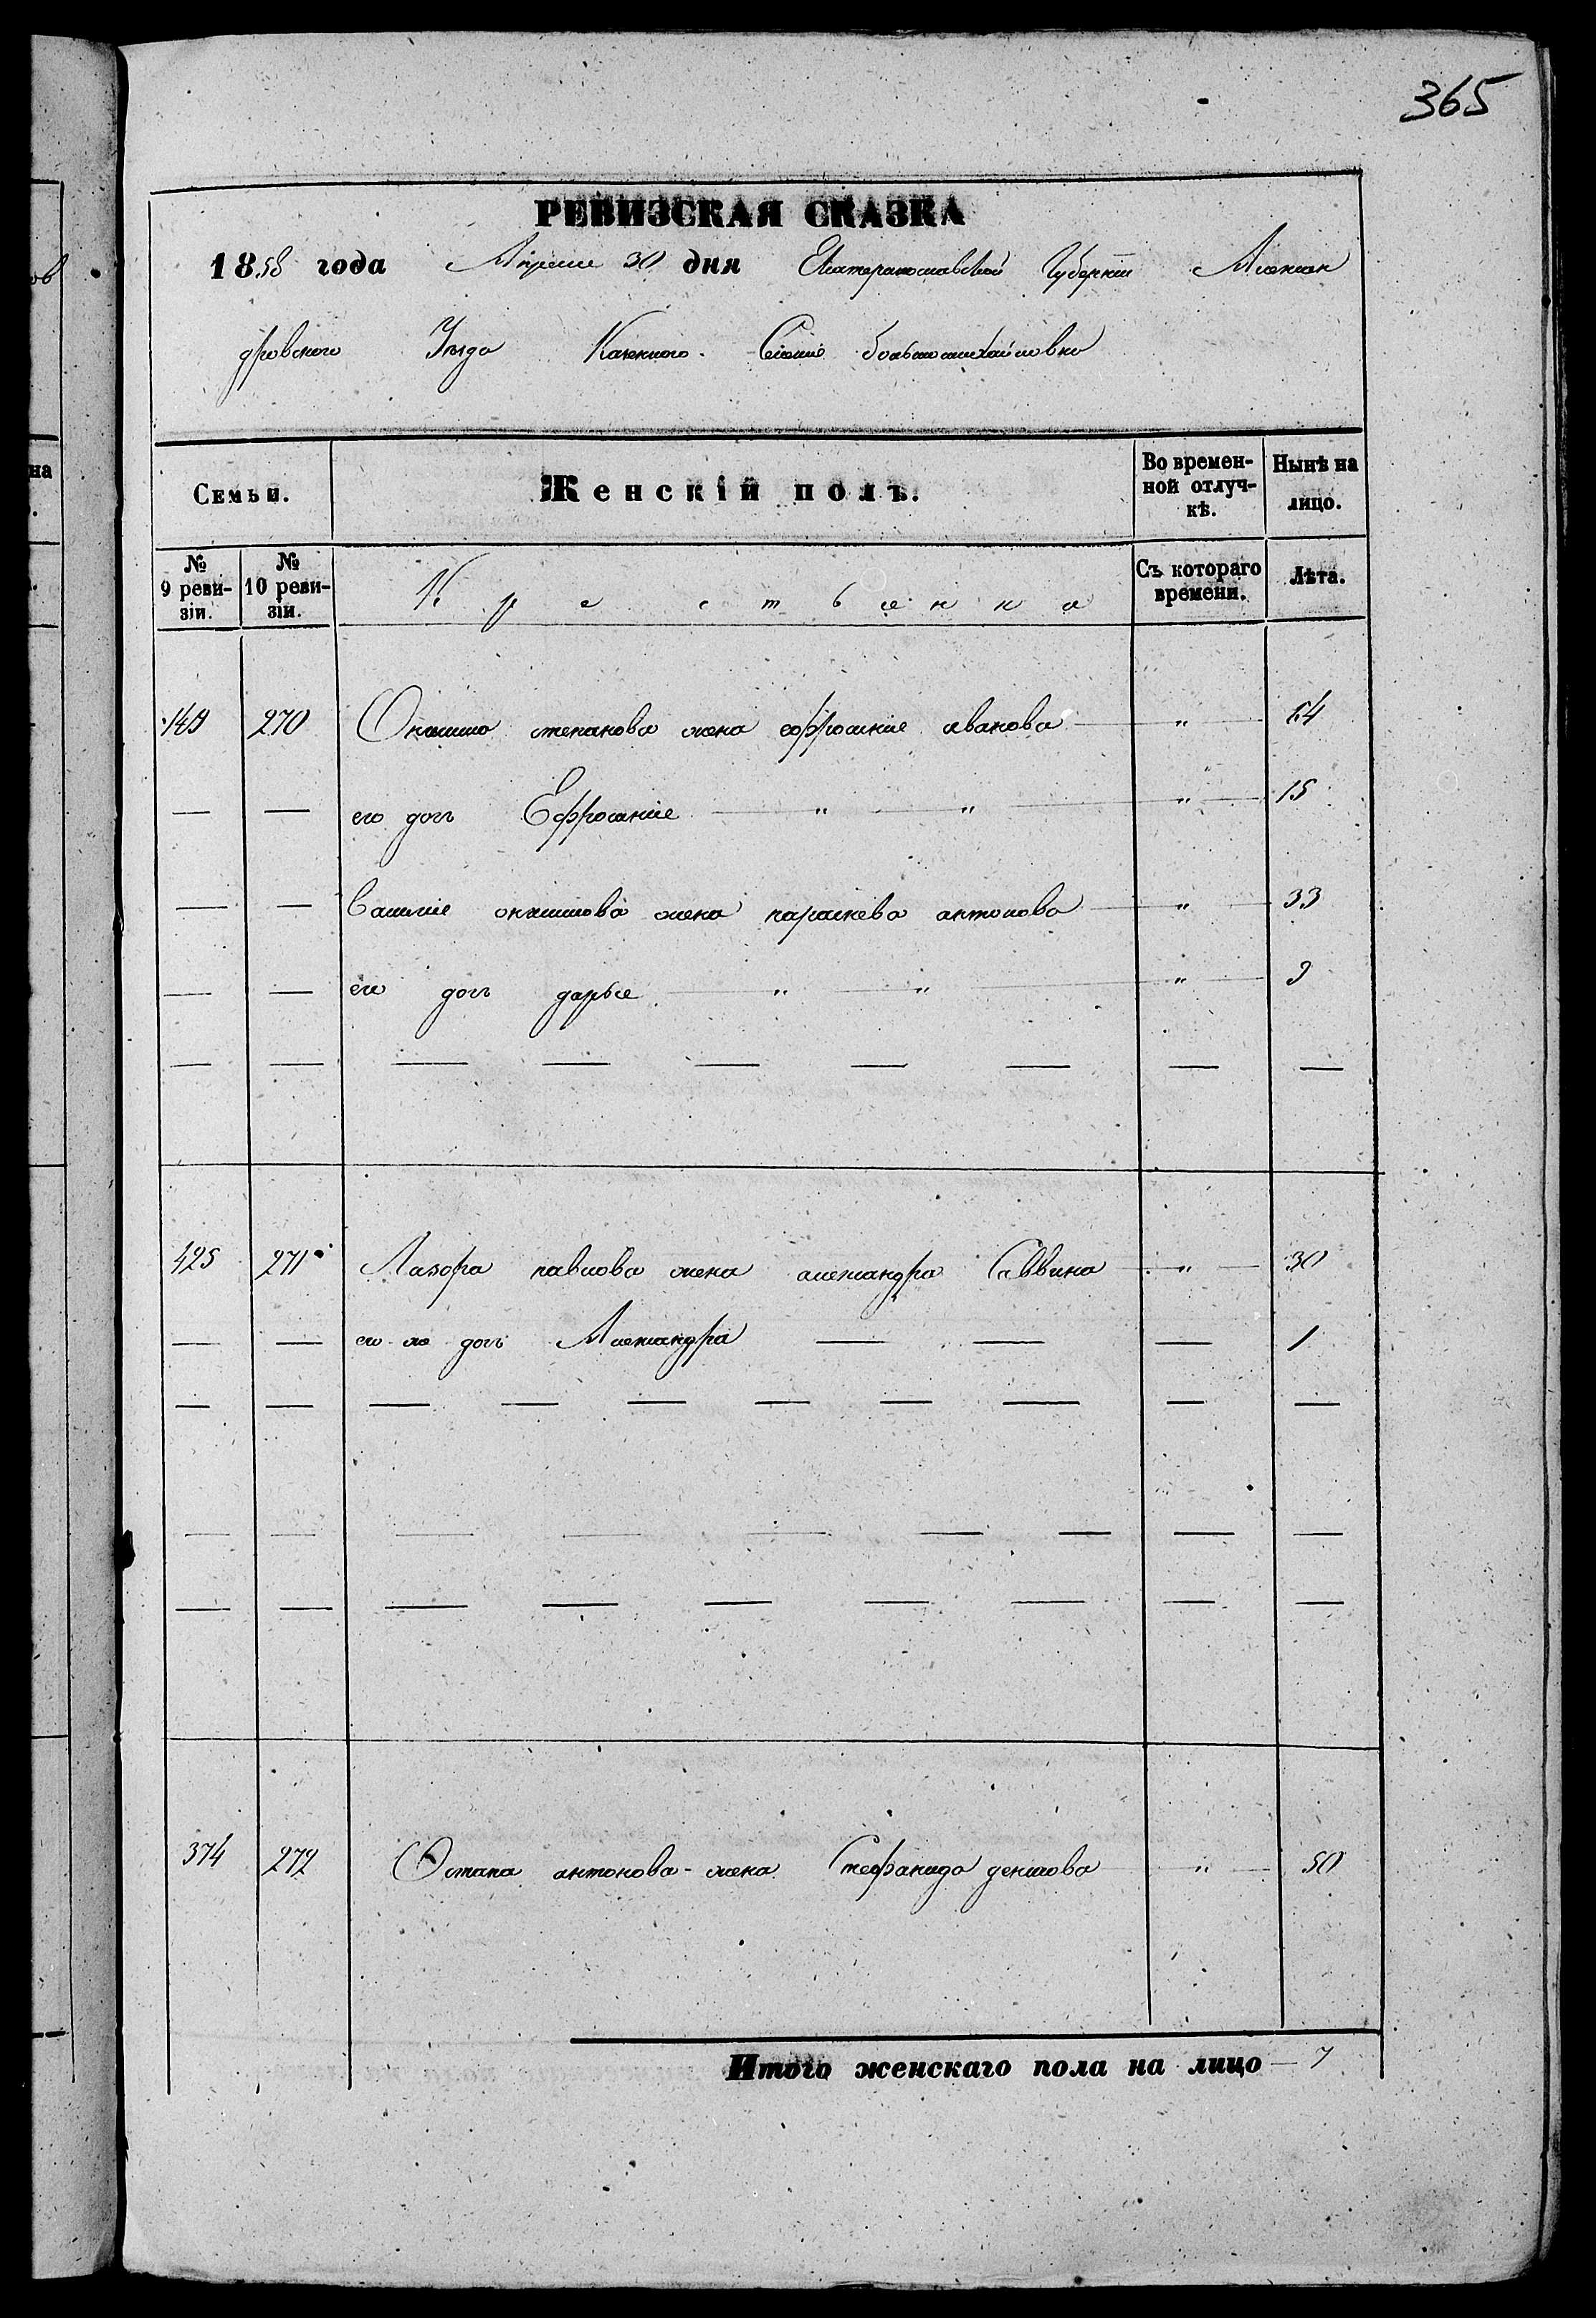 365
РЕВИЗСКАЯ СКАЗКА
1858 года Апреля 30 дня Екатеринославской Губернiи Алексан
дровского Уезда Казенного Селенiе большомихайловка
Семьи. Женскiй полъ. Во времен-ной отлуч-кѣ. Нынѣ на лицо.
№ 9 реви-зiи. № 10 реви-зiи. Крестьянка Съ котораго времени. Лѣта.
149 270 степанова жена ефросинiе иванова — " —
— — его дочь Ефросинiе — " — " — " — 15
— — Василiе жена параскева антонова — " — 33
— — его дочь дарье — " — " — " — 9
— — — — — — — — —
425 271 Лазора павлова жена александра Саввина — " — 30
— — его же дочь Александра — — — 1
— — — — — — — — — —
— — — — — — — — —
— — — — — — — — —
374 272 Остапа антонова жена Стефанида денисова — " — 50
Итого женскаго пола на лицо — 7